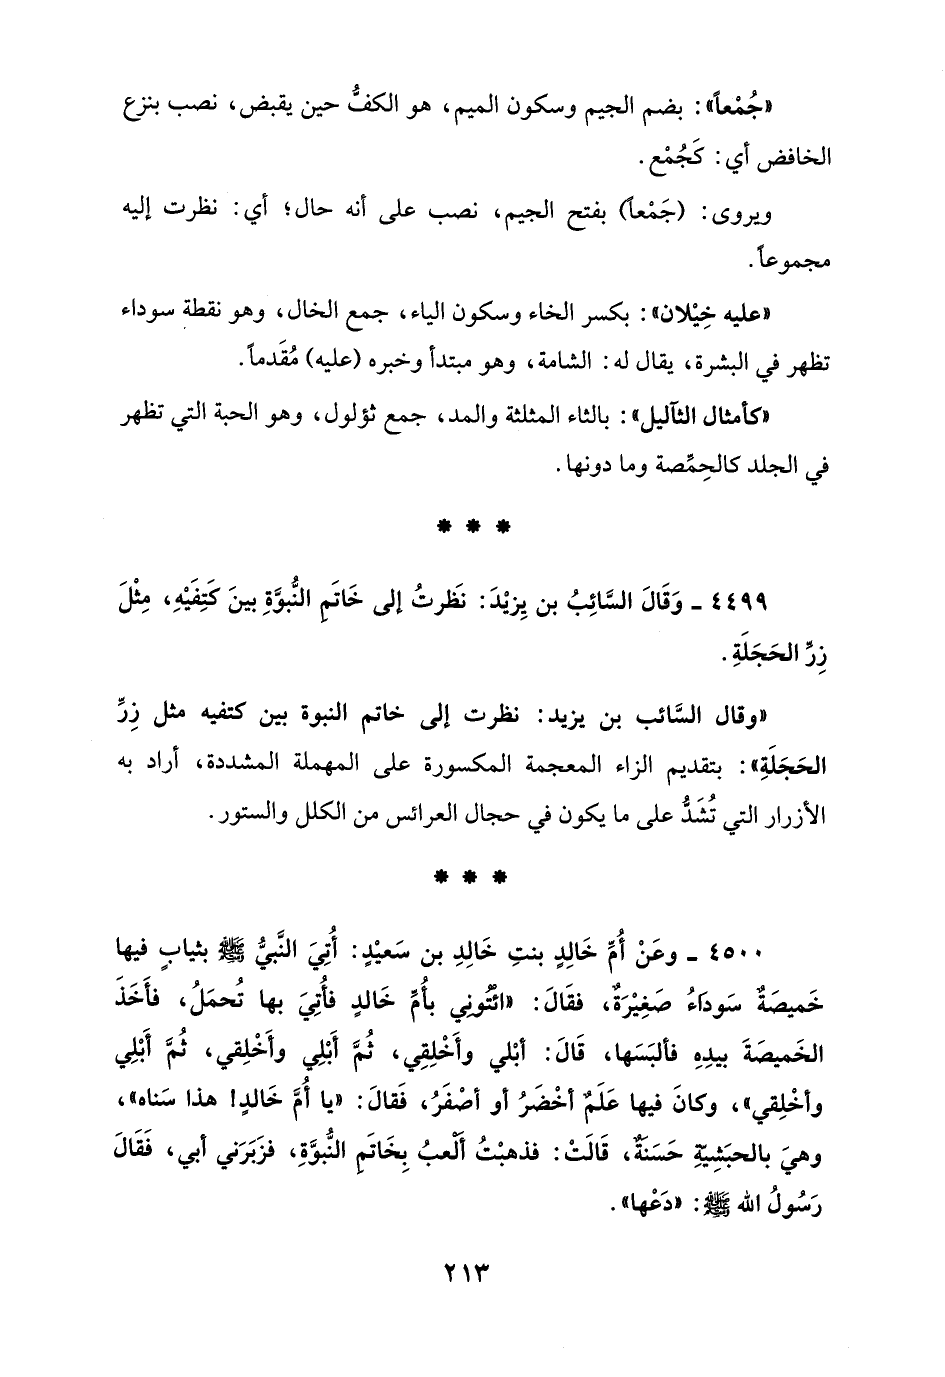 «جُمْعاً»: بضم الجيم وسكون الميم، هو الكفُّ حين يقبض، نصب بنزع
الخافض أي: كَجُمْع.
ويروى: (جَمْعاً) بفتح الجيم، نصب على أنه حال؛ أي: نظرت إليه
مجموعاً.
«عليه خِيْلان»: بكسر الخاء وسكون الياء، جمع الخال، وهو نقطة سوداء
تظهر في البشرة، يقال له: الشامة، وهو مبتدأ وخبره (عليه) مُقَدماً.
«كأمثال الثآليل»: بالثاء المثلثة والمد، جمع ثؤلول، وهو الحبة التي تظهر
في الجلد كالحِمِّصة وما دونها.
* * *
٤٤٩٩ ـ وَقَالَ السَّائِبُ بن يِزيْدَ: نَظرتُ إلى خَاتَمِ النُّبوَّةِ بينَ كَتِفَيْهِ، مِثْلَ
زِرِّ الحَجَلَةِ.
«وقال السَّائب بن يزيد: نظرت إلى خاتم النبوة بين كتفيه مثل زِرِّ
الحَجَلَةِ»: بتقديم الزاء المعجمة المكسورة على المهملة المشددة، أراد به
الأزرار التي تُشَدُّ على ما يكون في حجال العرائس من الكلل والستور.
* * *
٤٥٠٠ ـ وعَنْ أُمِّ خَالدٍ بنتِ خَالِدِ بن سَعيْدٍ: أُتِيَ النَّبيُّ ﷺ بثيابٍ فيها
خَميصَةٌ سَوداءُ صَغِيْرَةٌ، فقَالَ: «ائْتُوني بأُمِّ خَالدٍ فأُتِيَ بها تُحمَلُ، فأَخَذَ
الخَميصَةَ بيدِهِ فألبَسَها، قَالَ: أبْلي وأَخْلِقِي، ثُمَّ أَبْلِي وأَخْلِقي، ثُمَّ أَبْلِي
وأخْلِقي»، وكانَ فيها عَلَمٌ أخْضَرُ أو أصْفَرُ، فَقالَ: «يا أُمَّ خَالدٍ! هذا سَناه»،
وهيَ بالحبَشِيّةِ حَسَنَةٌ، قَالَتْ: فذهبْتُ أَلْعبُ بِخَاتَمِ النُّبوَّةِ، فزَبَرَني أبي، فَقَالَ
رَسُولُ الله ﷺ: «دَعْها».
٢١٣